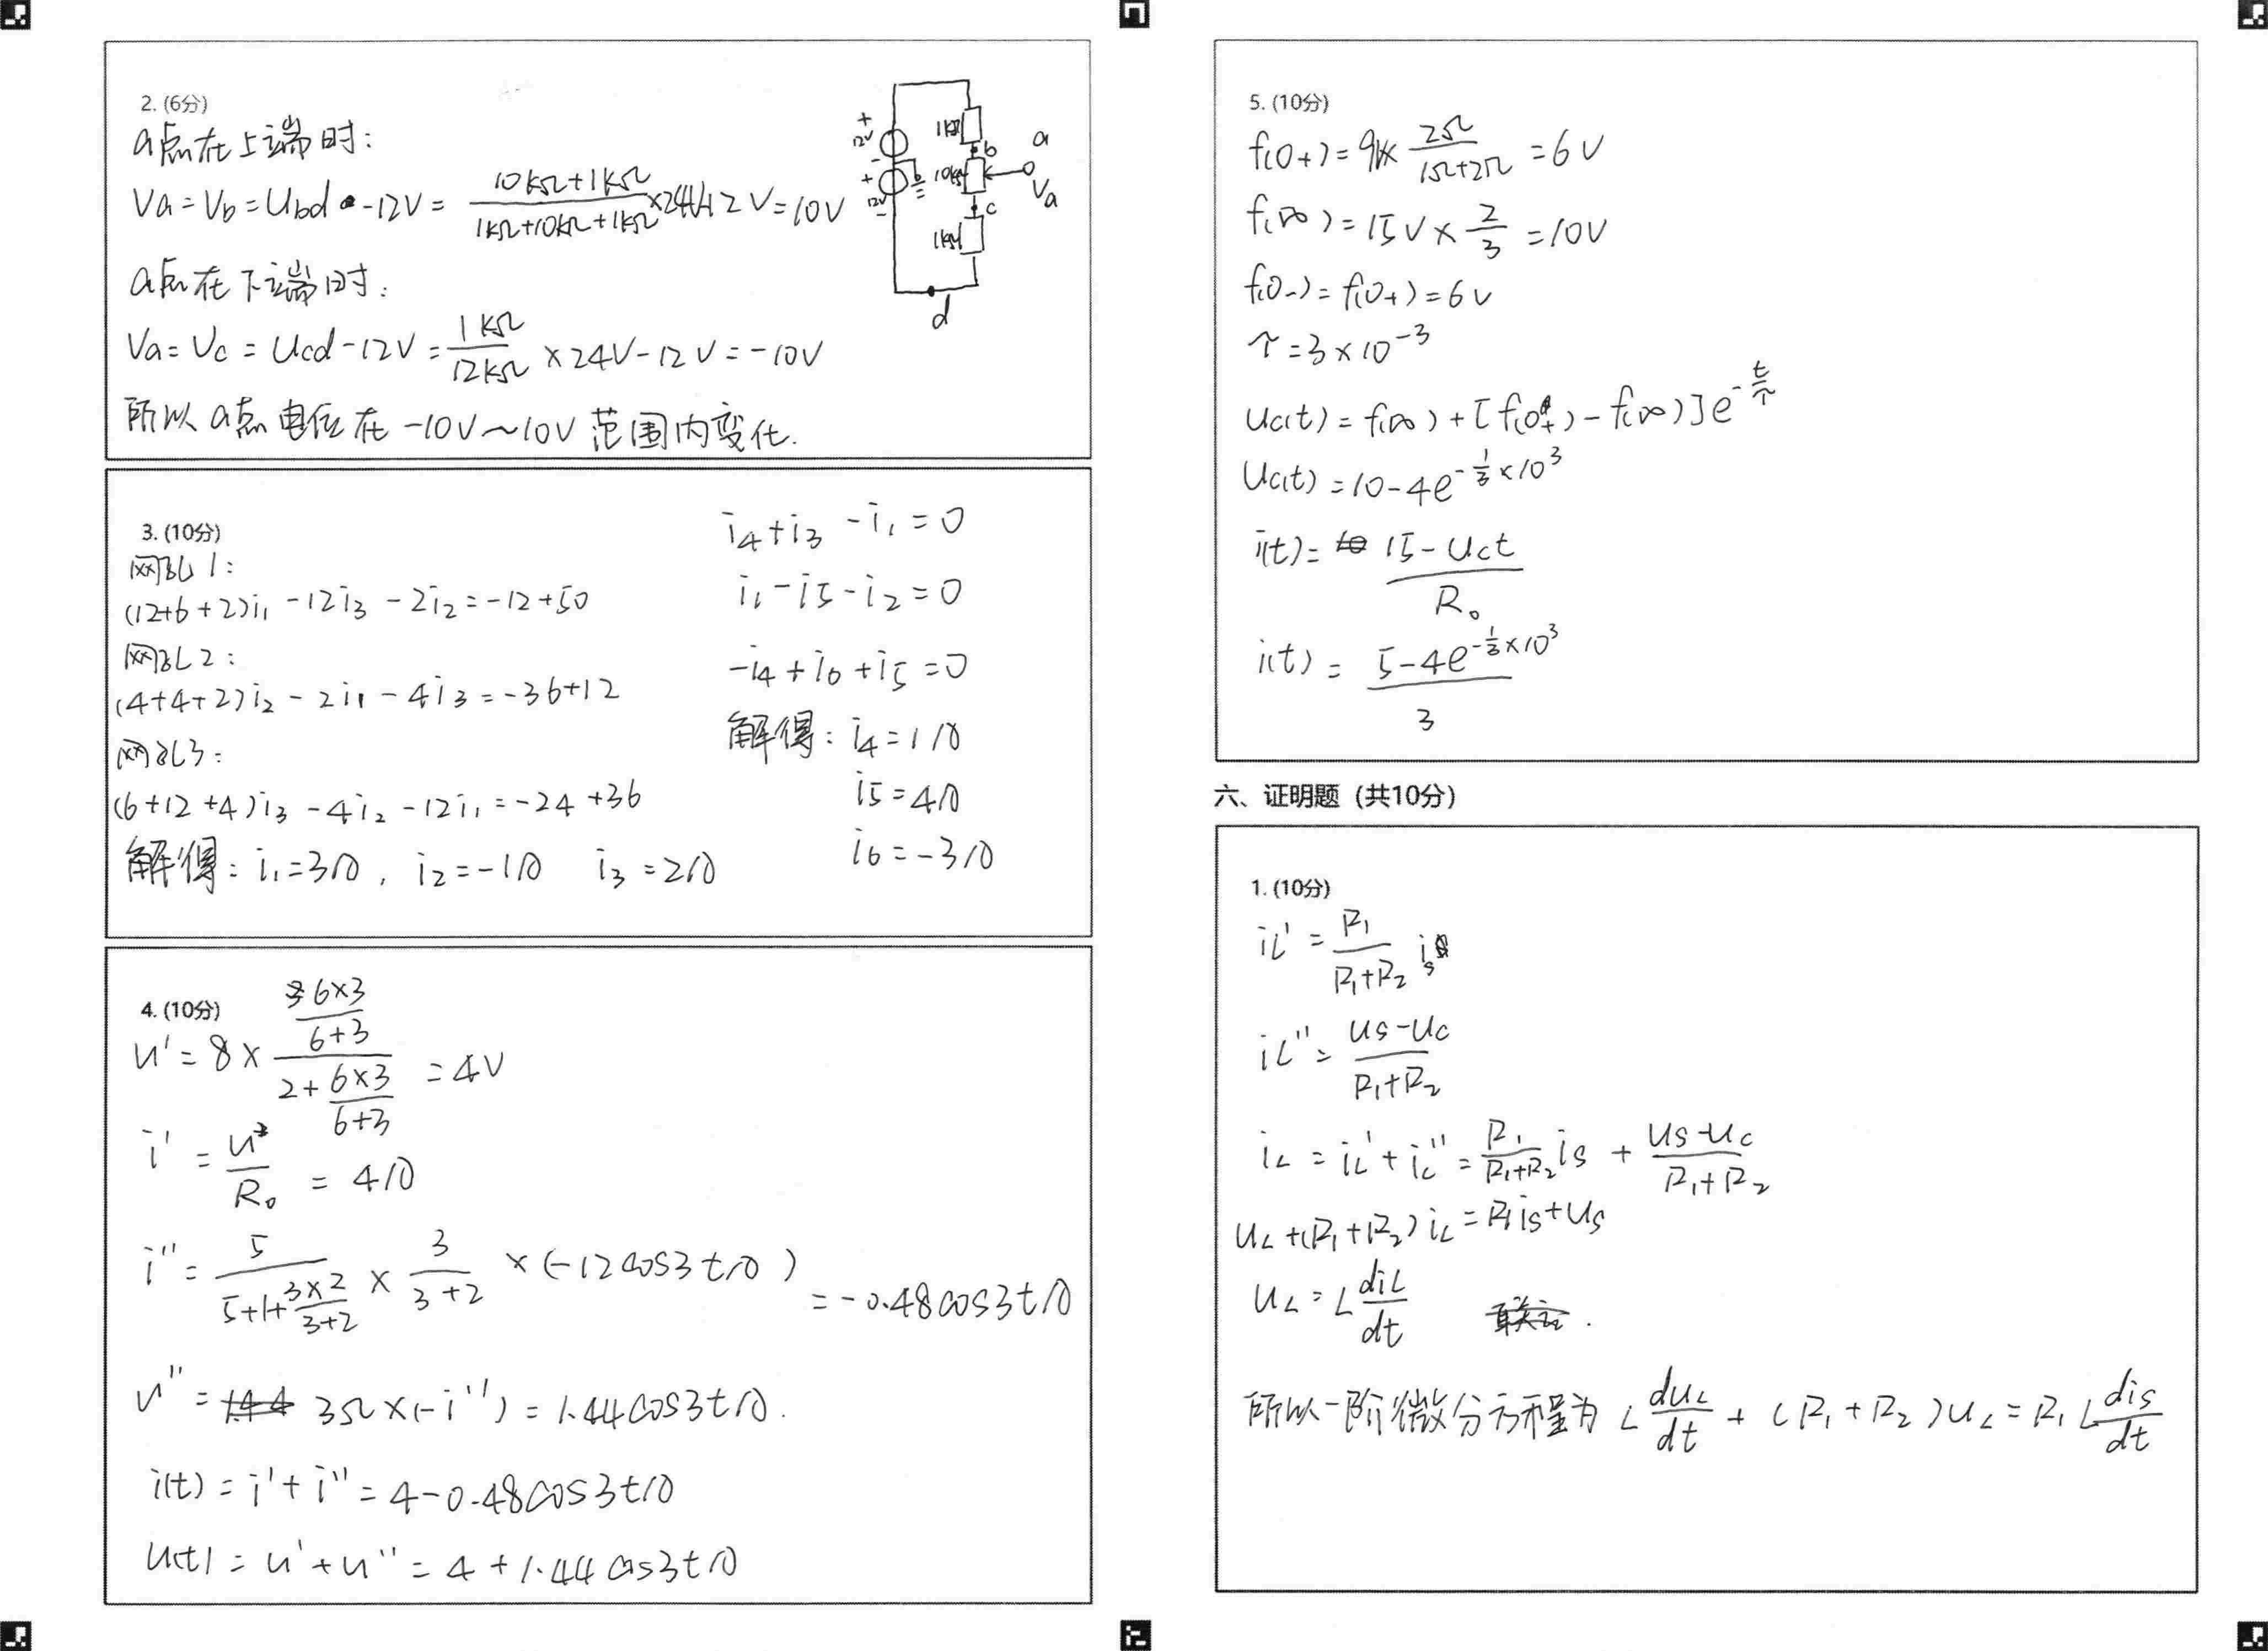 2. (6分)
a点在上端时:
Va = Vb = Ubd -12V = (10kΩ+1kΩ)/(1kΩ+10kΩ+1kΩ) ×24V-12V = 10V
a点在下端时:
Va = Vc = Ucd -12V = 1kΩ/12kΩ × 24V -12V = -10V
所以a点电位在 -10V~10V 范围内变化.
+
12V
-
+
12V
-
1kΩ
b
10kΩ
a
Va
c
1kΩ
d
3. (10分)
网孔1:
(12+6+2)i₁ -12i₃ -2i₂ = -12+50
网孔2:
(4+4+2)i₂ -2i₁ -4i₃ = -36+12
网孔3:
(6+12+4)i₃ -4i₂ -12i₁ = -24+36
解得: i₁=3A, i₂=-1A i₃=2A
i₄+i₃ -i₁ = 0
i₁ -i₅ -i₂ = 0
-i₄+i₆+i₅ = 0
解得: i₄=1A
i₅=4A
i₆=-3A
4. (10分)
u' = 8 × (6×3/(6+3))/(2+6×3/(6+3)) = 4V
i' = u'/R₀ = 4A
i'' = 5/(5+1+3×2/(3+2)) × 3/(3+2) × (-12cos3tA) = -0.48cos3tA
u'' = 3Ω×(-i'') = 1.44cos3tA.
i(t) = i'+i'' = 4-0.48cos3tA
u(t) = u'+u'' = 4+1.44cos3tA
5. (10分)
f(0+) = 9V× 2Ω/(1Ω+2Ω) = 6V
f(∞) = 15V × 2/3 = 10V
f(0-) = f(0+) = 6V
τ = 3×10⁻³
Uc(t) = f(∞) + [f(0+) - f(∞)]e^(-t/τ)
Uc(t) = 10-4e^(-1/3×10³)
i(t) = (15-Uct)/R₀
i(t) = (5-4e^(-1/3×10³))/3
六、证明题 (共10分)
1. (10分)
iL' = R₁/(R₁+R₂) is
iL'' = (us-uc)/(R₁+R₂)
iL = iL'+iL'' = R₁/(R₁+R₂) is + (us-uc)/(R₁+R₂)
uL+(R₁+R₂)iL = R₁is+us
uL = L diL/dt
所以一阶微分方程为 L duL/dt + (R₁+R₂)uL = R₁L dis/dt